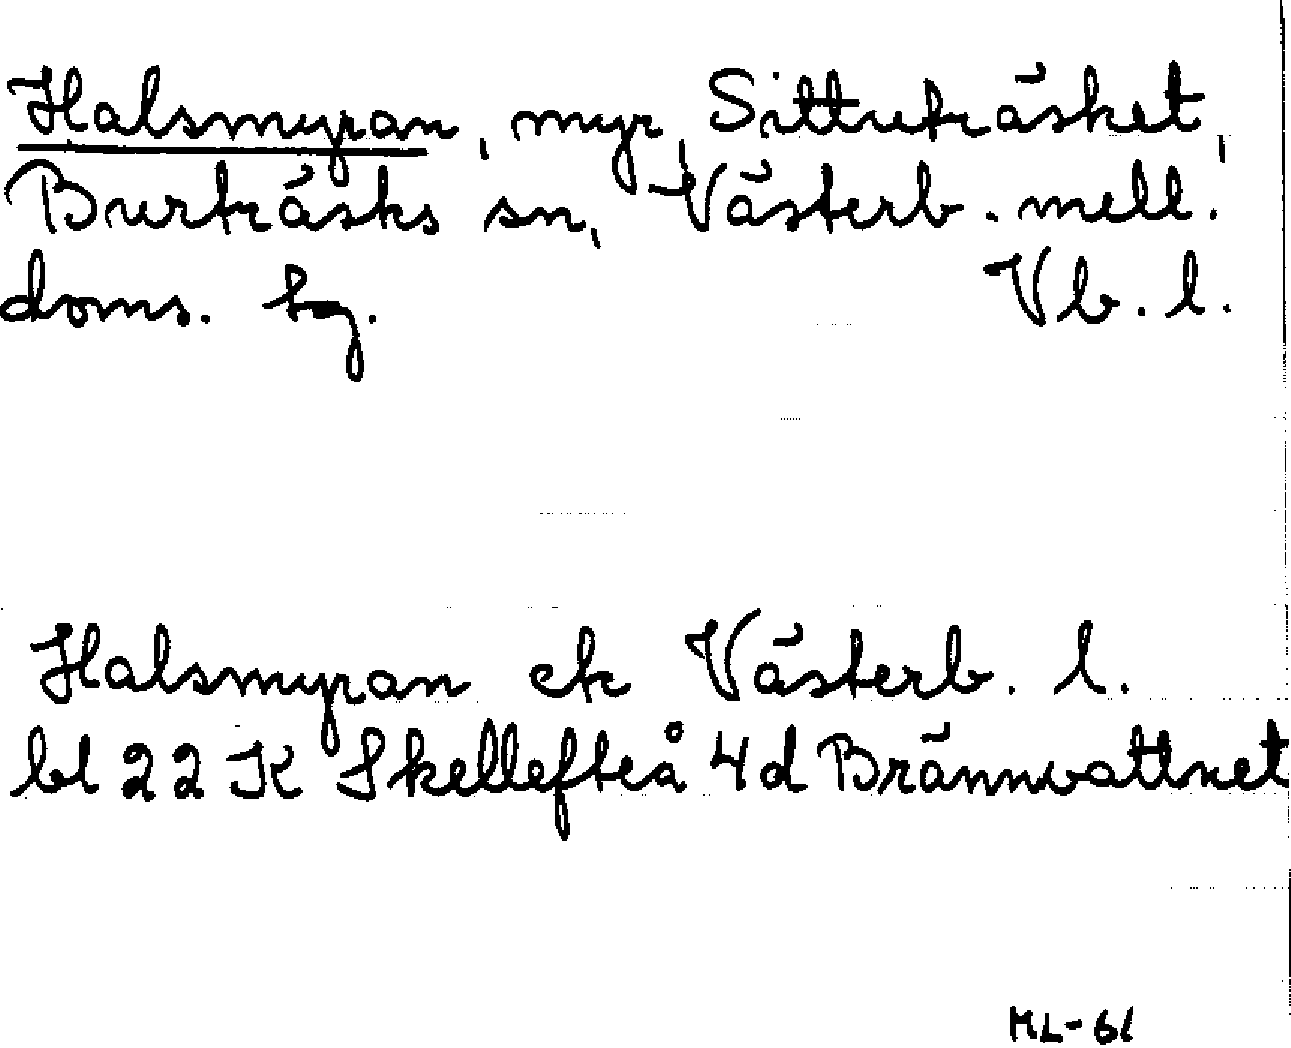 Halsmyran, myr, Sittuträsket,
Burträsks sn, Västerb. mell.
doms. hg. Vb. l.
Halsmyran ek Västerb. l.
bl 22 K Skellefteå 4d Brännvattnet
ML-61